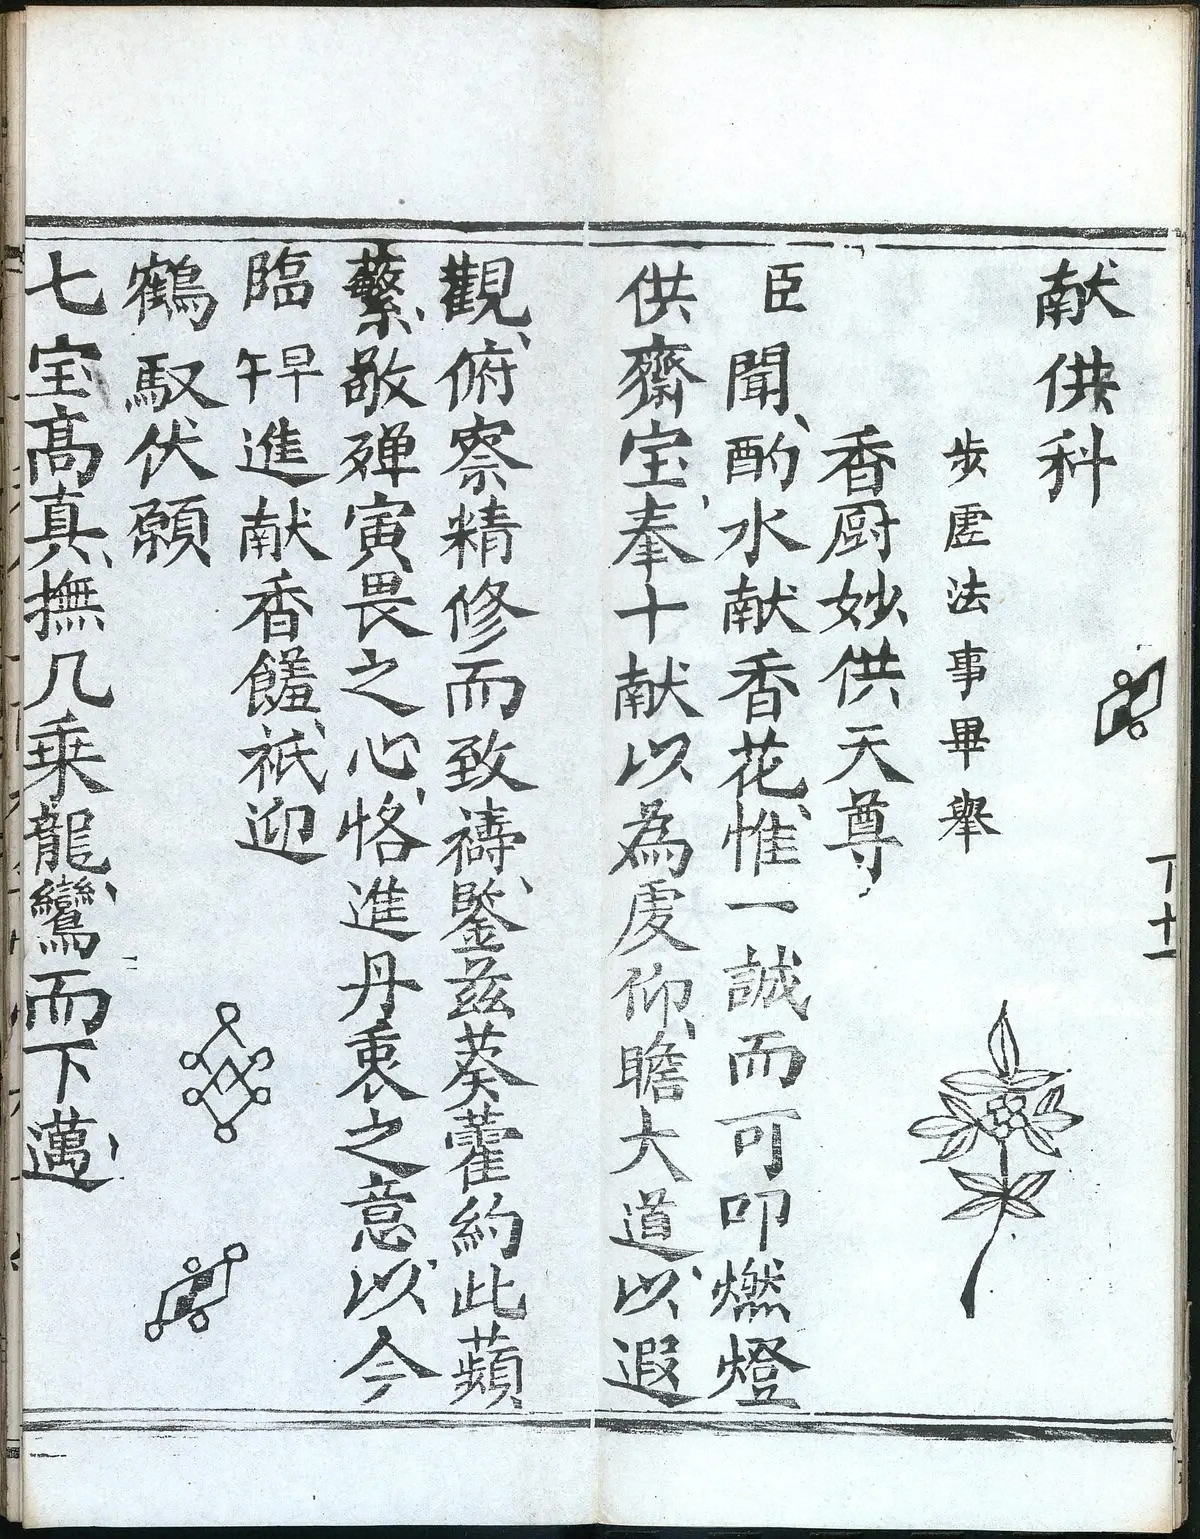 献供科
下十一
步虛法事畢舉
香厨妙供天尊
臣聞酌水献香花惟一誠而可叩燃燈
供齋宝奉十献以為虔仰瞻大道以遐
觀俯察精修而致禱鑒兹葵藿約此蘋
蘩敬殫寅畏之心恪進丹衷之意以今
臨午早進献香饈祇迎
鶴馭伏願
七宝高真撫几乗龍鸞而下邁